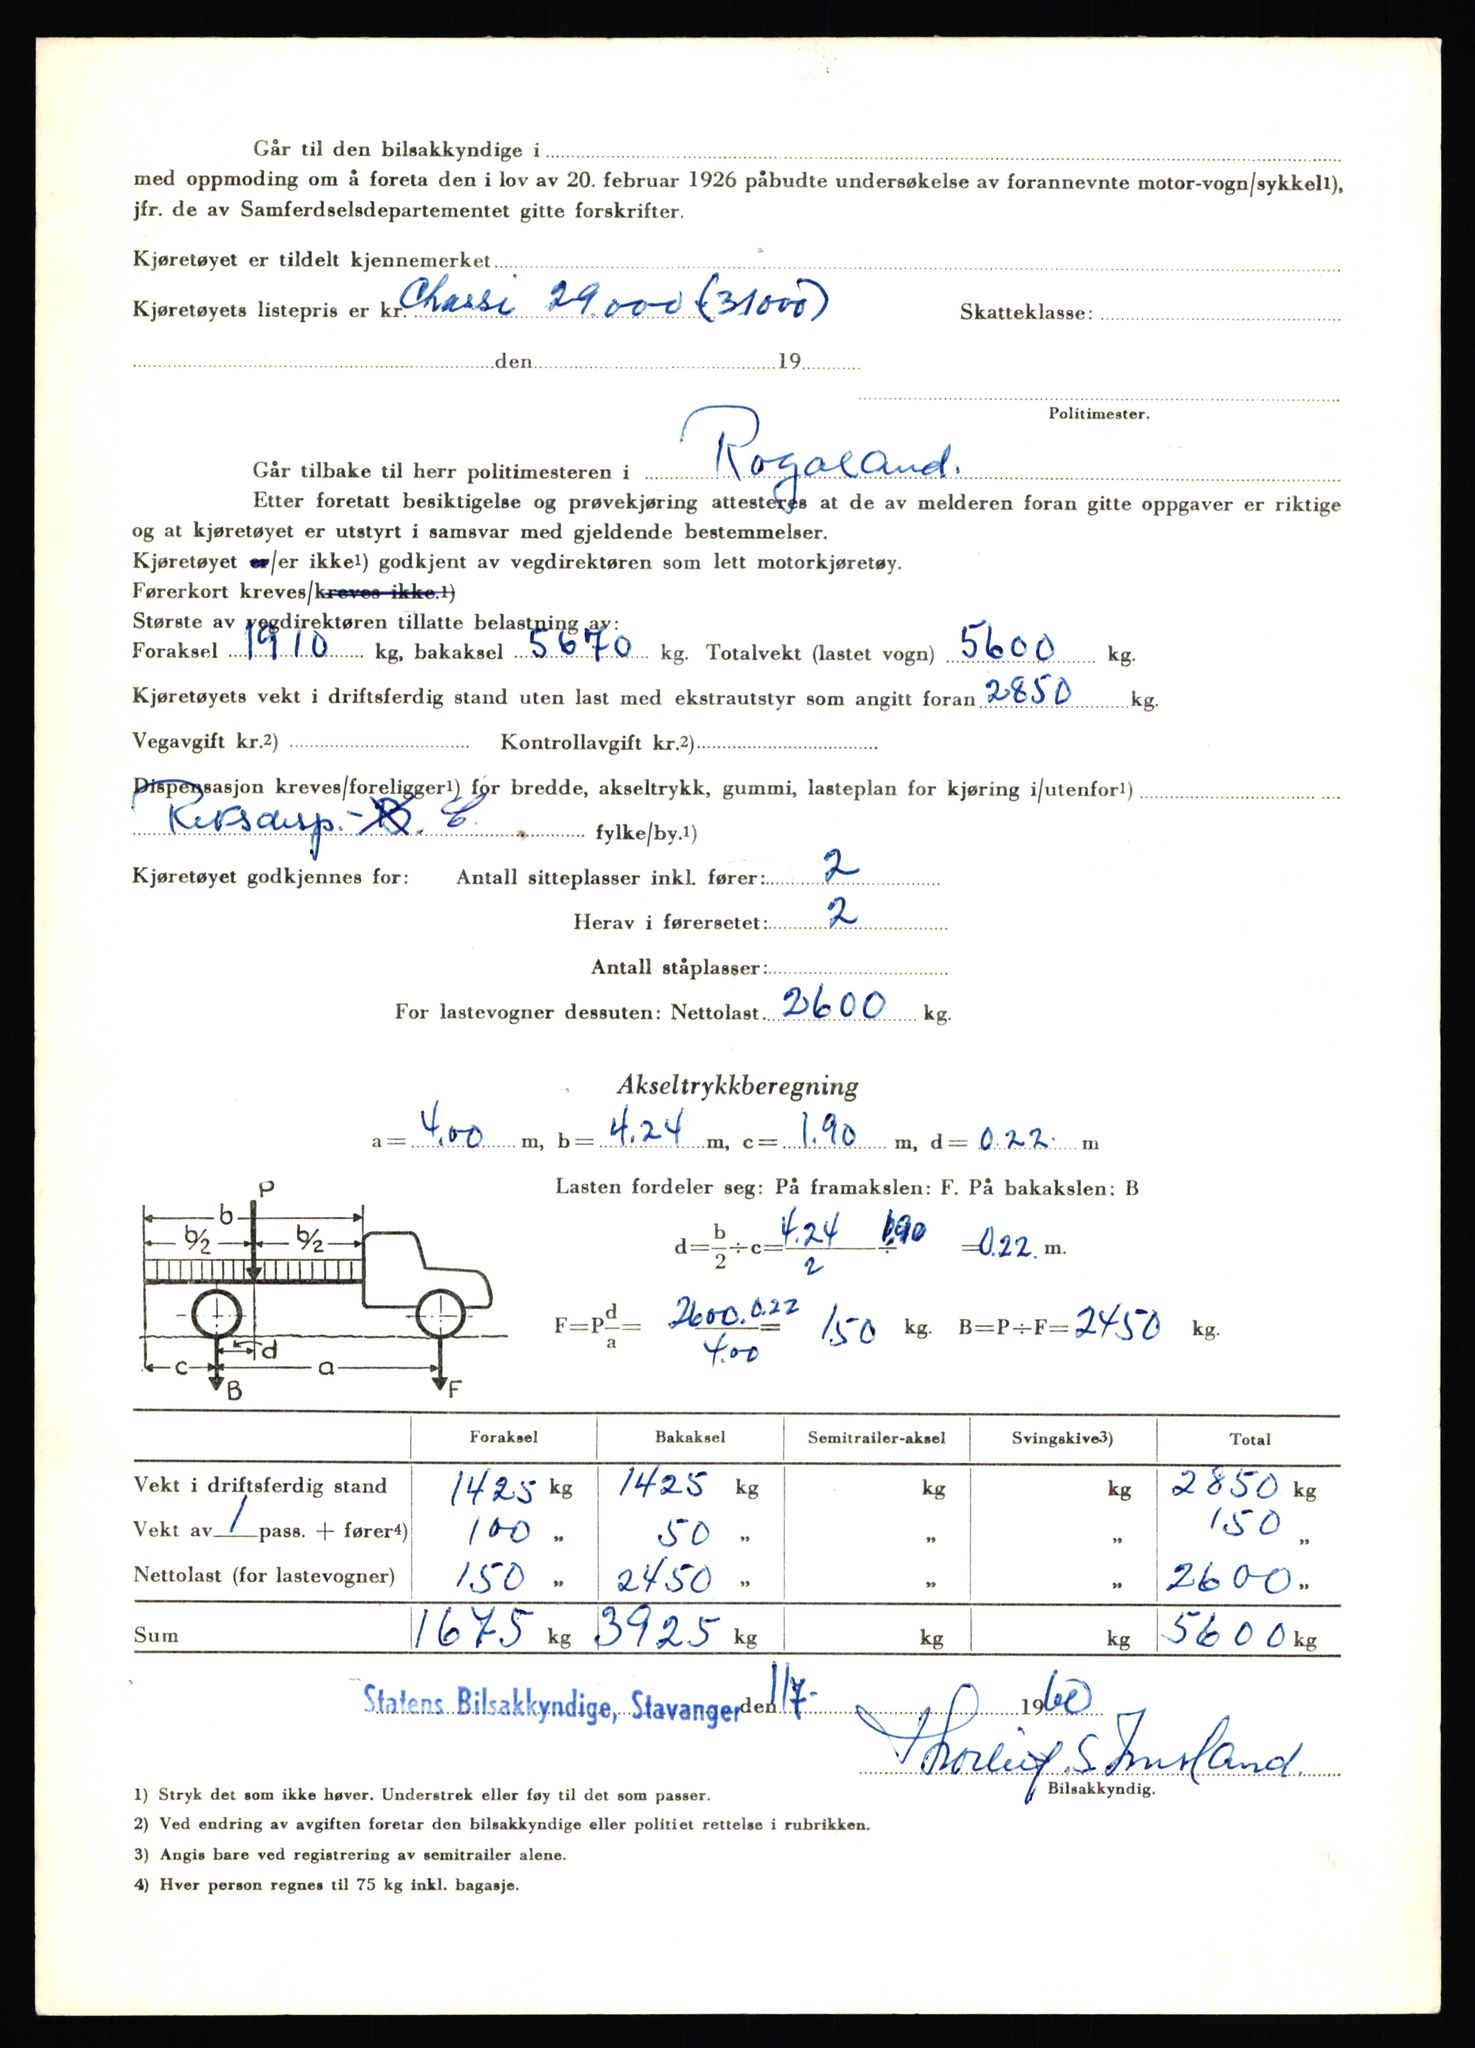 Går til den bilsakkyndige i
med oppmoding om å foreta den i lov av 20. februar 1926 påbudte undersøkelse av forannevnte motor-vogn/sykkel1),
jfr. de av Samferdselsdepartementet gitte forskrifter.
Kjøretøyet er tildelt kjennemerket
Kjøretøyets listepris er kr. Chassi 29.000 (31000) Skatteklasse:
den 19
Politimester.
Går tilbake til herr politimesteren i Rogaland.
Etter foretatt besiktigelse og prøvekjøring attesteres at de av melderen foran gitte oppgaver er riktige
og at kjøretøyet er utstyrt i samsvar med gjeldende bestemmelser.
Kjøretøyet er/er ikke1) godkjent av vegdirektøren som lett motorkjøretøy.
Førerkort kreves/kreves ikke.1)
Største av vegdirektøren tillatte belastning av:
Foraksel 1910 kg, bakaksel 5670 kg. Totalvekt (lastet vogn) 5600 kg.
Kjøretøyets vekt i driftsferdig stand uten last med ekstrautstyr som angitt foran 2850 kg.
Vegavgift kr.2) Kontrollavgift kr.2)
Dispensasjon kreves/foreligger1) for bredde, akseltrykk, gummi, lasteplan for kjøring i/utenfor1)
Riksdisp. - B. C. fylke/by.1)
Kjøretøyet godkjennes for: Antall sitteplasser inkl. fører: 2
Herav i førersetet: 2
Antall ståplasser:
For lastevogner dessuten: Nettolast 2600 kg.
Akseltrykkberegning
a = 4.00 m, b = 4.24 m, c = 1.90 m, d = 0.22 m
Lasten fordeler seg: På framakslen: F. På bakakslen: B
P
b
b/2 b/2
d = b/2 ÷ c = 4.24/2 ÷ 1.90 = 0.22 m.
F = P d/a = 2600.0.22/4.00 = 150 kg. B = P ÷ F = 2450 kg.
d
c a
B F
Foraksel Bakaksel Semitrailer-aksel Svingskive3) Total
Vekt i driftsferdig stand 1425 kg 1425 kg kg kg 2850 kg
Vekt av 1 pass. + fører4) 100 „ 50 „ „ „ 150 „
Nettolast (for lastevogner) 150 „ 2450 „ „ „ 2600 „
Sum 1675 kg 3925 kg kg kg 5600 kg
Statens Bilsakkyndige, Stavanger den 1/7- 1960
S.
Bilsakkyndig.
1) Stryk det som ikke høver. Understrek eller føy til det som passer.
2) Ved endring av avgiften foretar den bilsakkyndige eller politiet rettelse i rubrikken.
3) Angis bare ved registrering av semitrailer alene.
4) Hver person regnes til 75 kg inkl. bagasje.